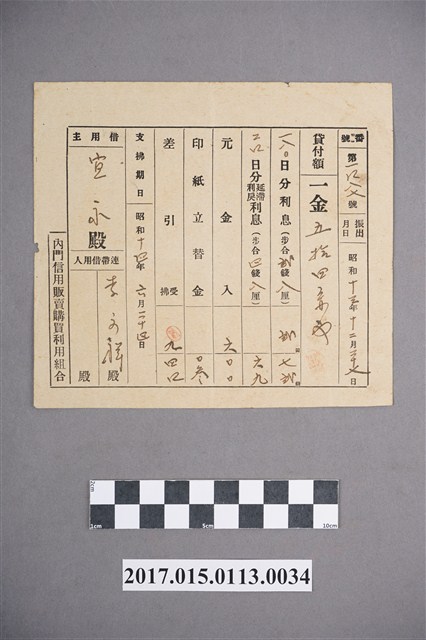 番號 第一〇八七號 振出月日 昭和十三年十二月二十七日
貸付額 一金五拾四円
一八〇日分利息(步合 貳錢八厘) 貳七貳
二〇日分延滯利戾利息(步合 四錢八厘) 六九
元金入 六〇〇
印紙立替金 〇參
差引 受拂 九四四
支拂期日 昭和十四年六月二十四日
借用主 宣永殿
連帶借用人 李 祥殿
殿
內門信用販賣購買利用組合
2cm
1cm 5cm 10cm
2017.015.0113.0034